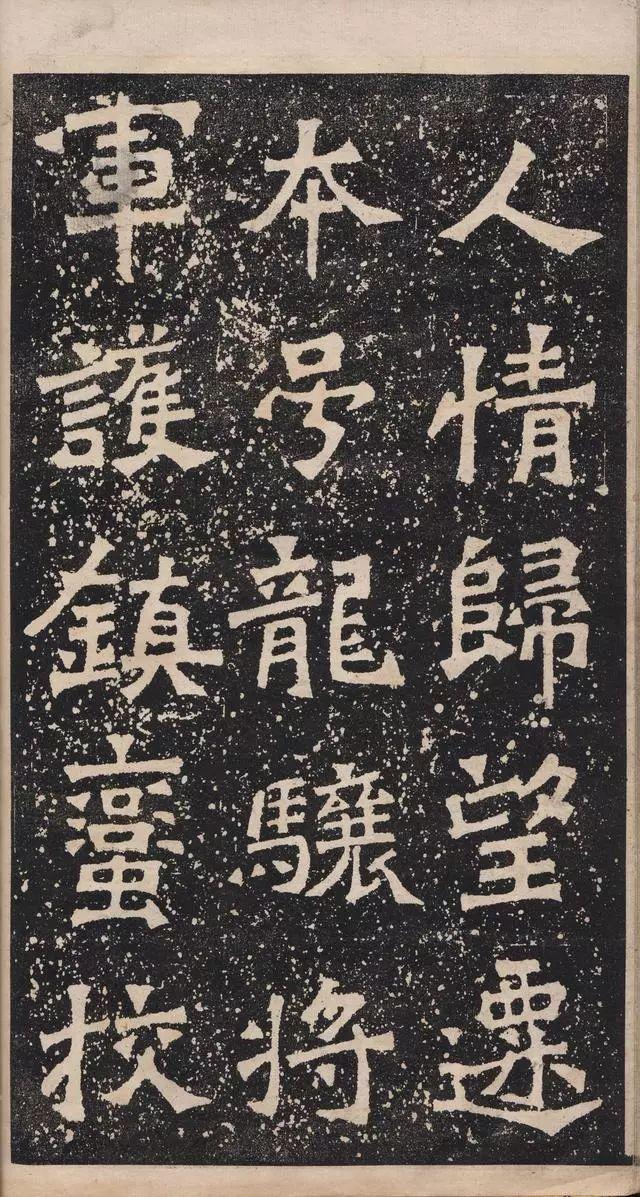 人情歸望遷
本号龍驤将
軍護鎮蠻挍